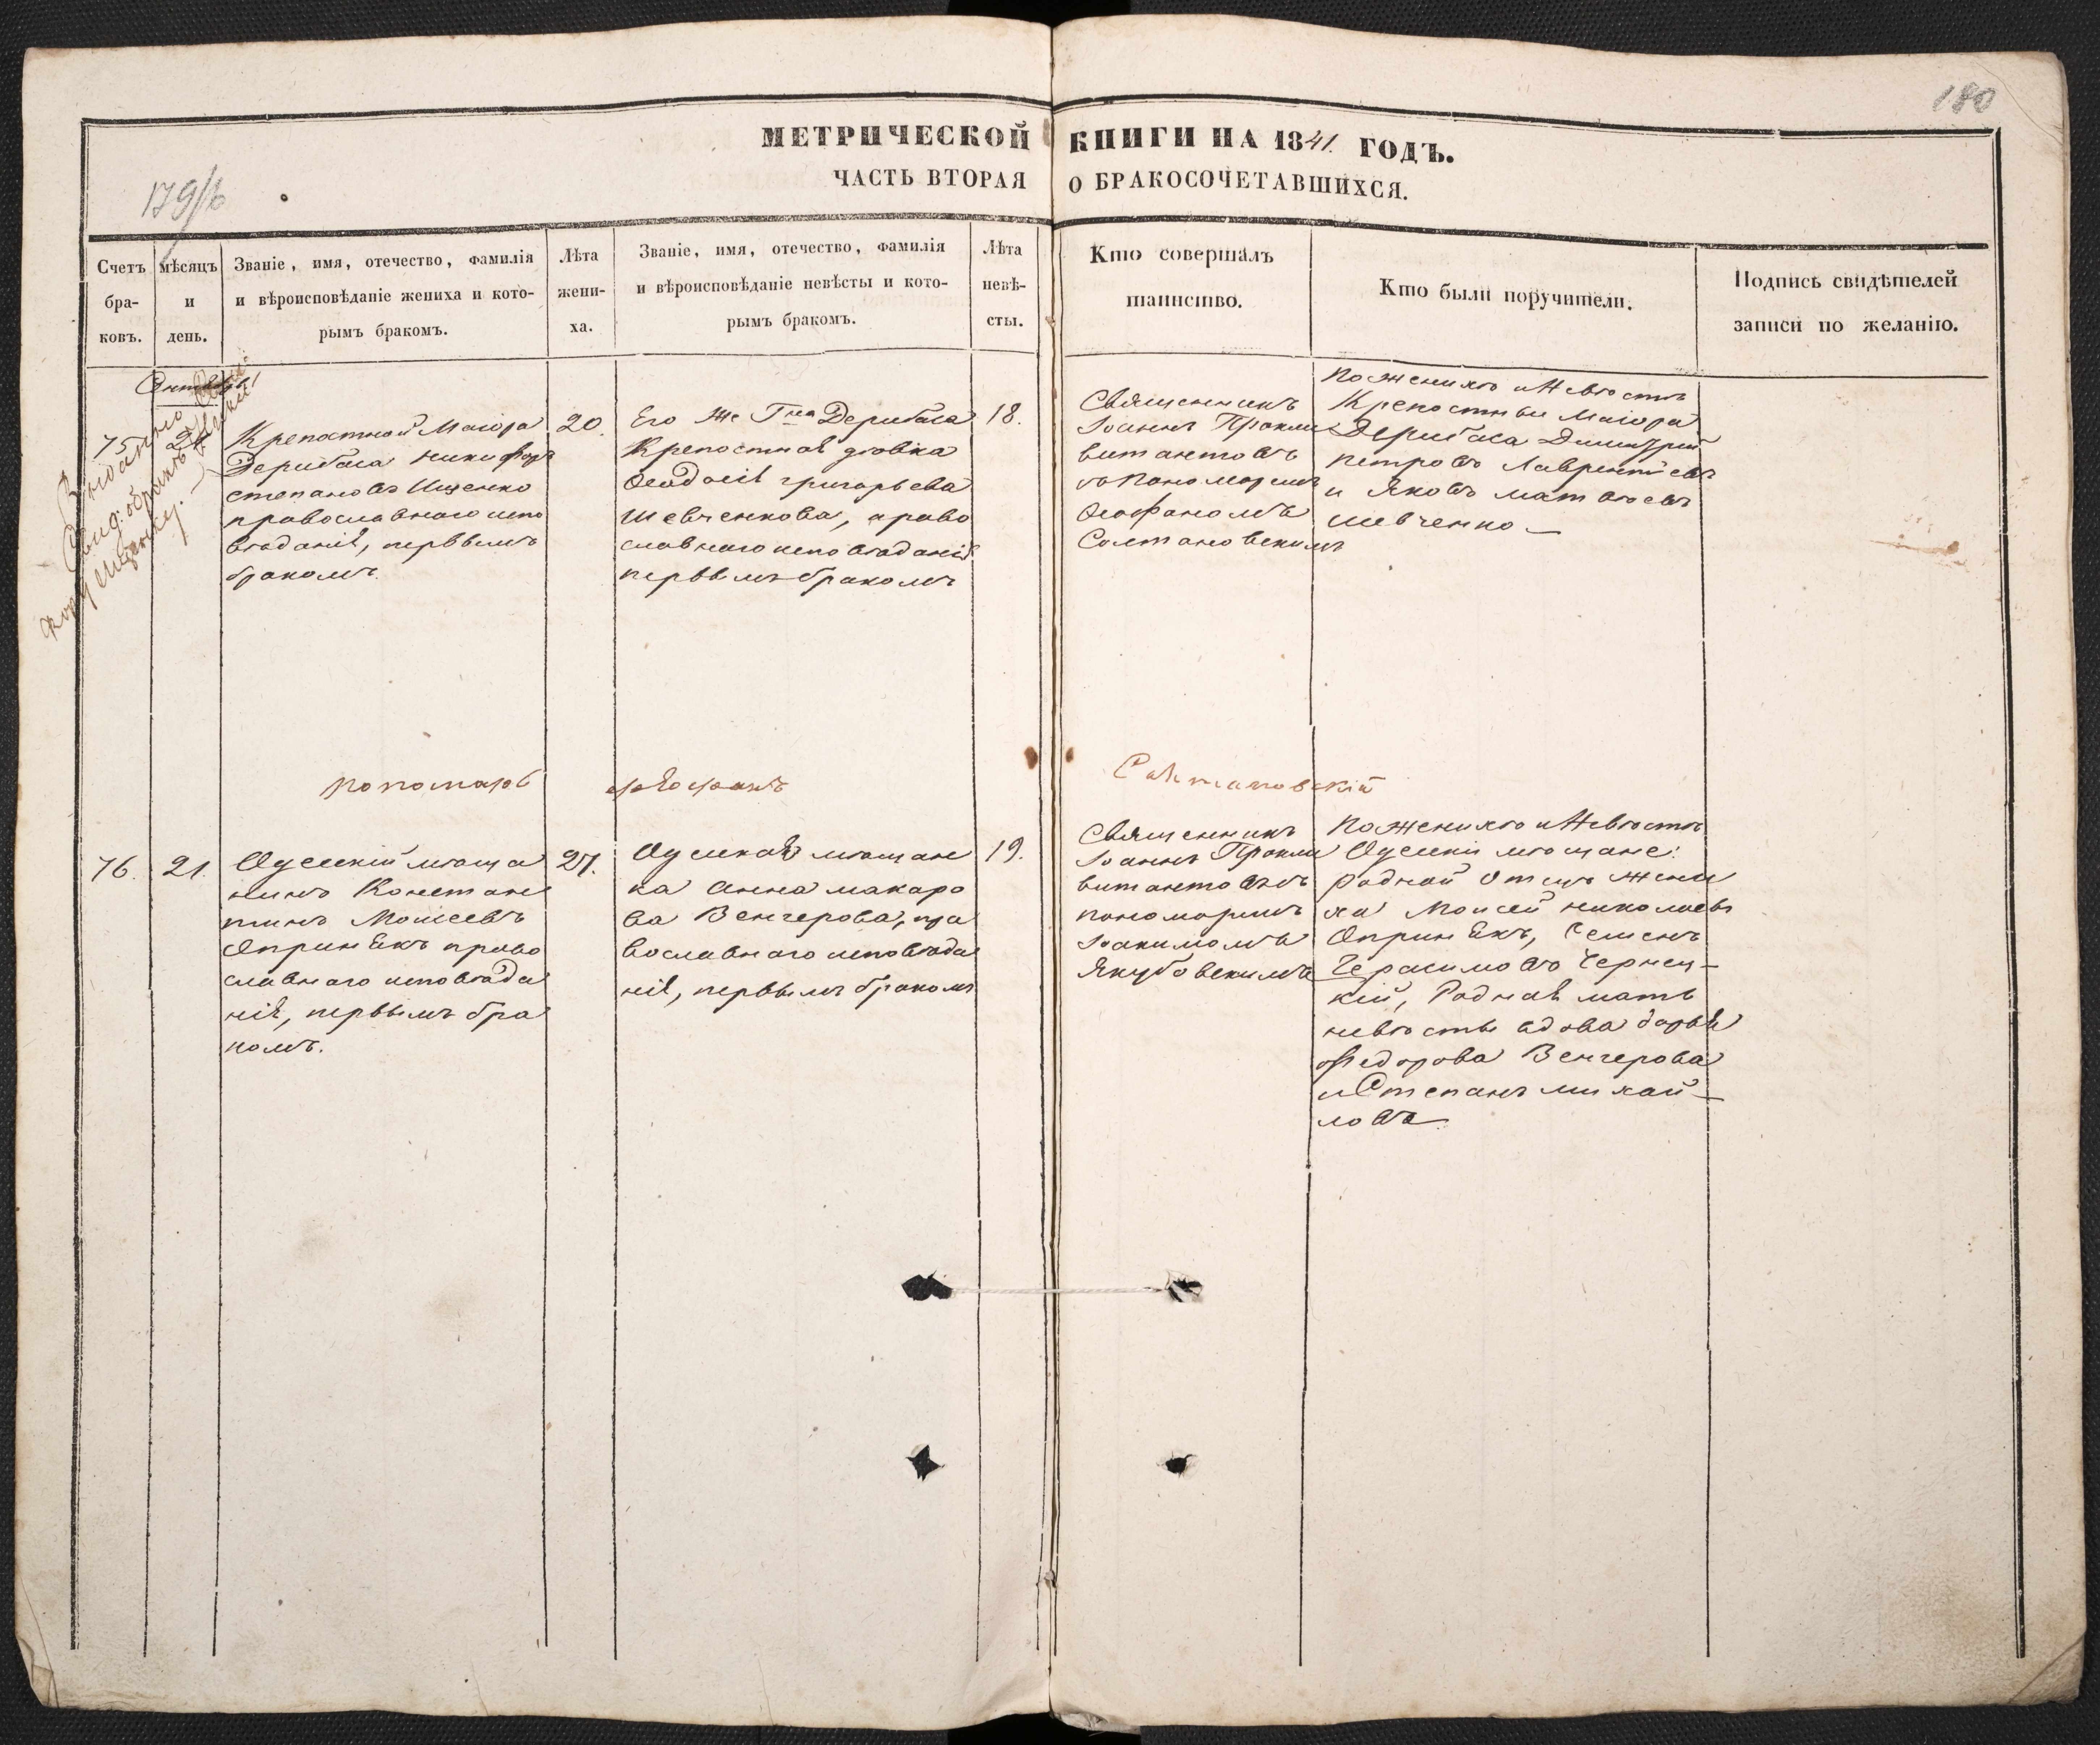 180
179/b
МЕТРИЧЕСКОЙ КНИГИ НА 1841 ГОДЪ.
ЧАСТЬ ВТОРАЯ О БРАКОСОЧЕТАВШИХСЯ.
Счетъ бра-ковъ.
мѣсяцъ и день.
Званіе, имя, отечество, фамилія
и вѣроисповѣданіе жениха и кото-
рымъ бракомъ.
Лѣта жени-ха.
Званіе, имя, отечество, фамилія
и вѣроисповѣданіе невѣсты и кото-
рымъ бракомъ.
Лѣта невѣ-сты.
Кто совершалъ
таинство.
Кто были поручители.
Подпись свидѣтелей
записи по желанію.
Сентябрь
75
Крепостной Маіора
Дерибаса Никифоръ
степановъ Ищенко
православнаго испо
вѣданія, первымъ
бракомъ.
20.
Его же Гна Дерибаса
Крепостная дѣвка
Ѳеодосія григорьева
Шевченкова, право
славнаго исповѣданія
первымъ бракомъ
18.
Священникъ
Іоаннъ Прокли
витантовъ
съ Пономаремъ
Ѳеофаномъ
Солтановскимъ
По женихѣ и Невѣстѣ
Крепостные Маіора
Дерибаса Димитрій
петровъ Лаврентіевъ
и Яковъ матвѣевъ
шевченко
пономарь Ѳеофанъ Салтановскій
76. 21.
Одесскій мѣща
нинъ Констан
тинъ Моисеевъ
Опринѣкъ право
славнаго исповѣда
нія, первымъ бра
комъ.
27.
Одеская мѣщан
ка Анна макаро
ва Венгерова, пра
вославнаго исповѣда
нія, первымъ бракомъ
19.
Священникъ
Іоаннъ Прокли
витантовъ съ
пономаремъ
Іоакимомъ
Якубовскимъ
По женихѣ и Невѣстѣ
Одесскіе мѣщане:
родной отецъ жени
ха Моисей николаевъ
Опринѣкъ, Семенъ
Герасимовъ Чернец-
кій, Родная мать
невѣсты вдова дарья
Ѳедорова Венгерова
и Степанъ михай-
ловъ